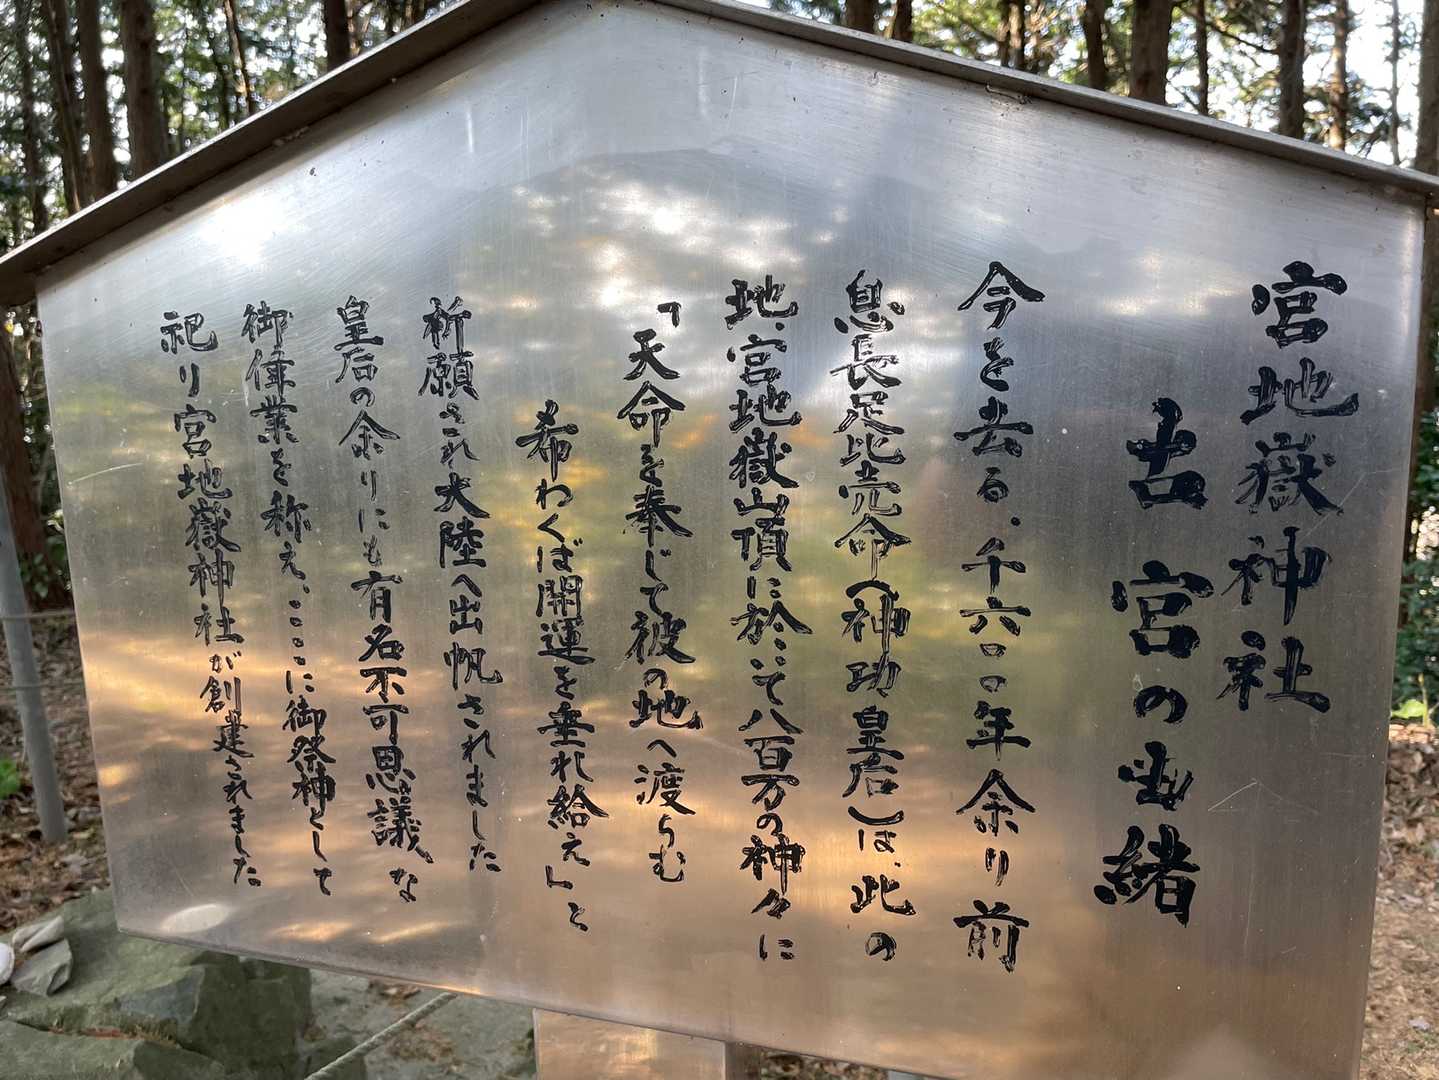 宮地嶽神社
古宮の由緒
今を去る、千六〇〇年余り前
息長足比売命(神功皇后)は、此の
地、宮地嶽山頂に於いて八百万の神々に
「天命を奉じて彼の地へ渡らむ
希わくば開運を垂れ給え」と
祈願され大陸へ出帆されました
皇后の余りにも有名不可思議な
御偉業を称え、ここに御祭神として
祀り宮地嶽神社が創建されました